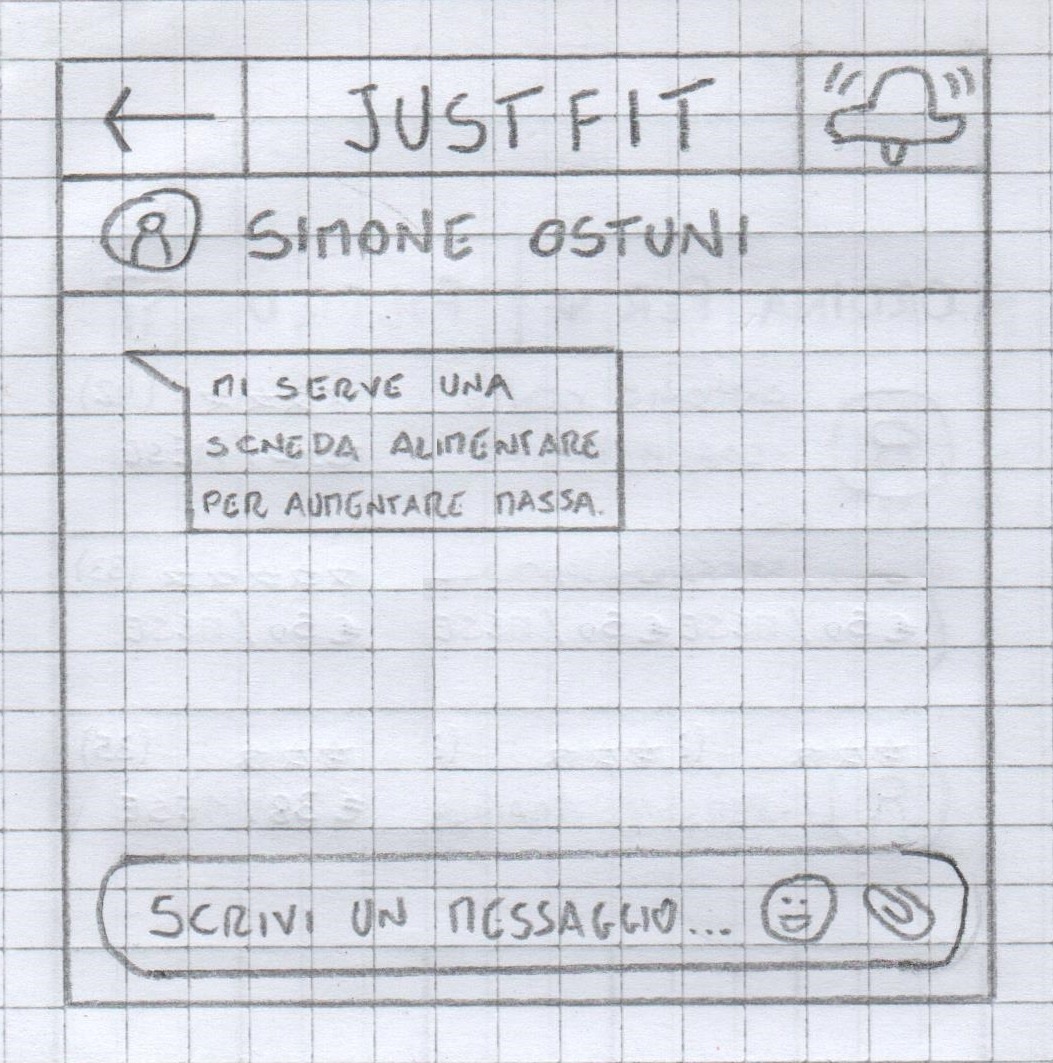 JUST FIT
SIMONE OSTUNI
MI SERVE UNA
SCHEDA ALIMENTARE
PER AUMENTARE MASSA.
SCRIVI UN MESSAGGIO...